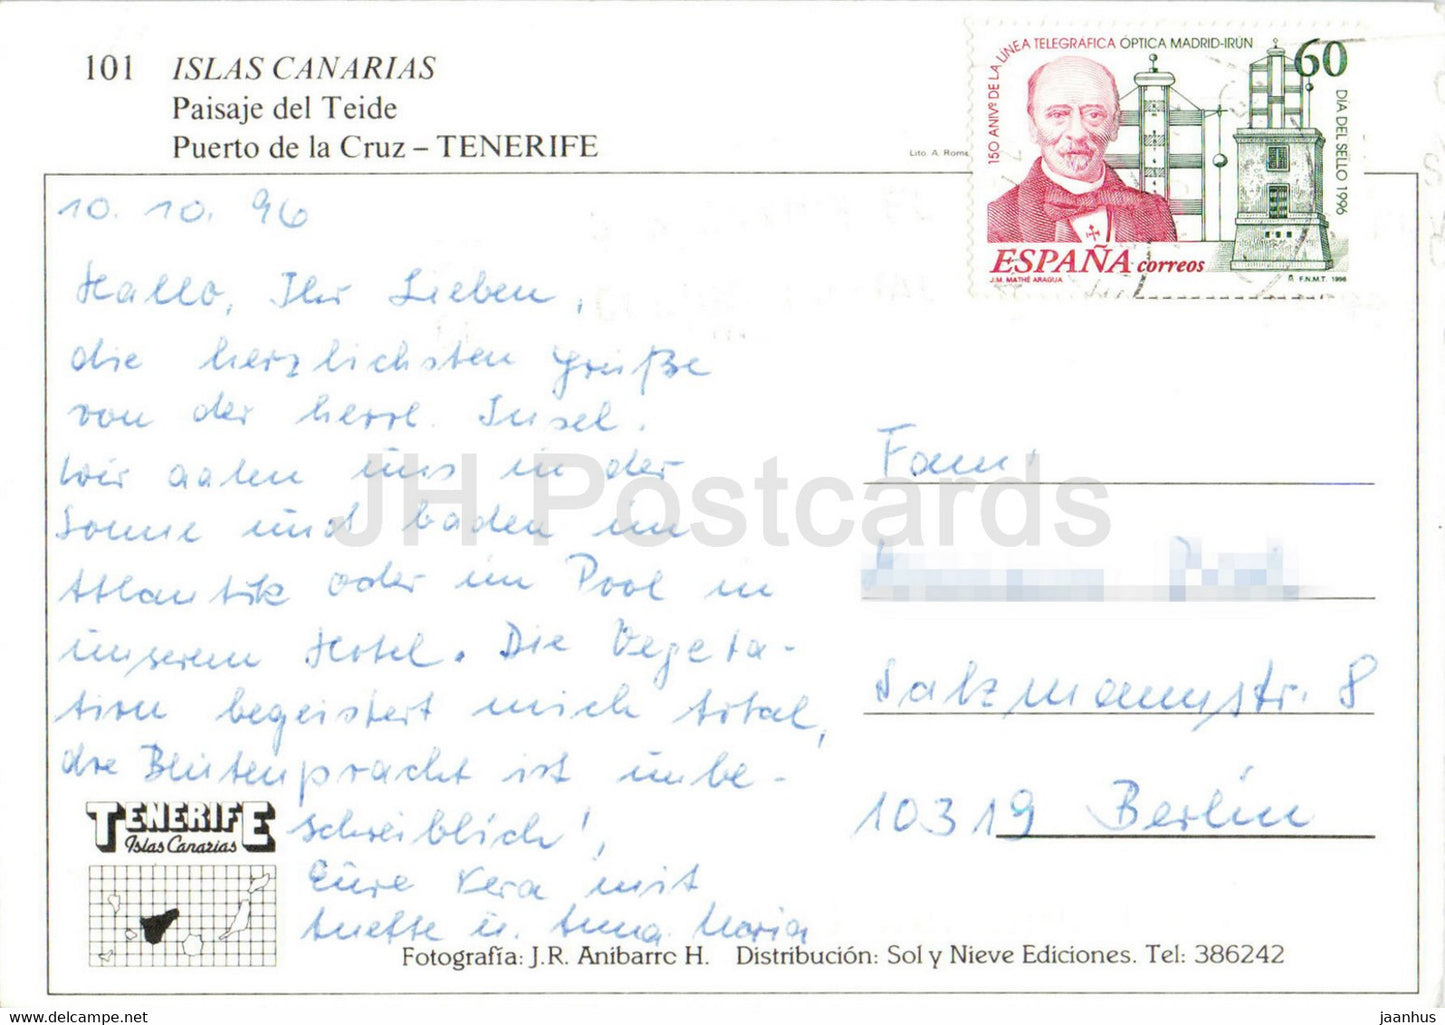 101 ISLAS CANARIAS
Paisaje del Teide
Puerto de la Cruz – TENERIFE
Lito. A. Rome
150 ANIVº DE LA LÍNEA TELEGRAFICA ÓPTICA MADRID-IRÚN
60
DIA DEL SELLO 1996
ESPAÑA correos
J.M. MATHÉ ARAGUA
F.N.M.T. 1996
10. 10. 96
Hallo, Ihr Lieben,
die herzlichsten Grüße
von der herrl. Insel.
Wir aalen uns in der
Sonne und baden im
Atlantik oder im Pool in
unserem Hotel. Die Vegeta-
tion begeistert mich total,
die Blütenpracht ist unbe-
schreiblich!
Eure Vera mit
Anette u. Anna Maria
Fam.
Salzmannstr. 8
10319 Berlin
JH Postcards
TENERIFE
Islas Canarias
Fotografía: J.R. Anibarro H. Distribución: Sol y Nieve Ediciones. Tel: 386242
delcampe.net
jaanhus